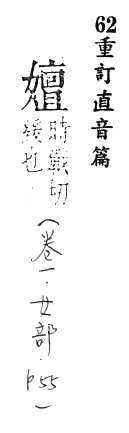 62重訂直音篇
嬗 時戰切
緩也
(卷一·女部·p55)